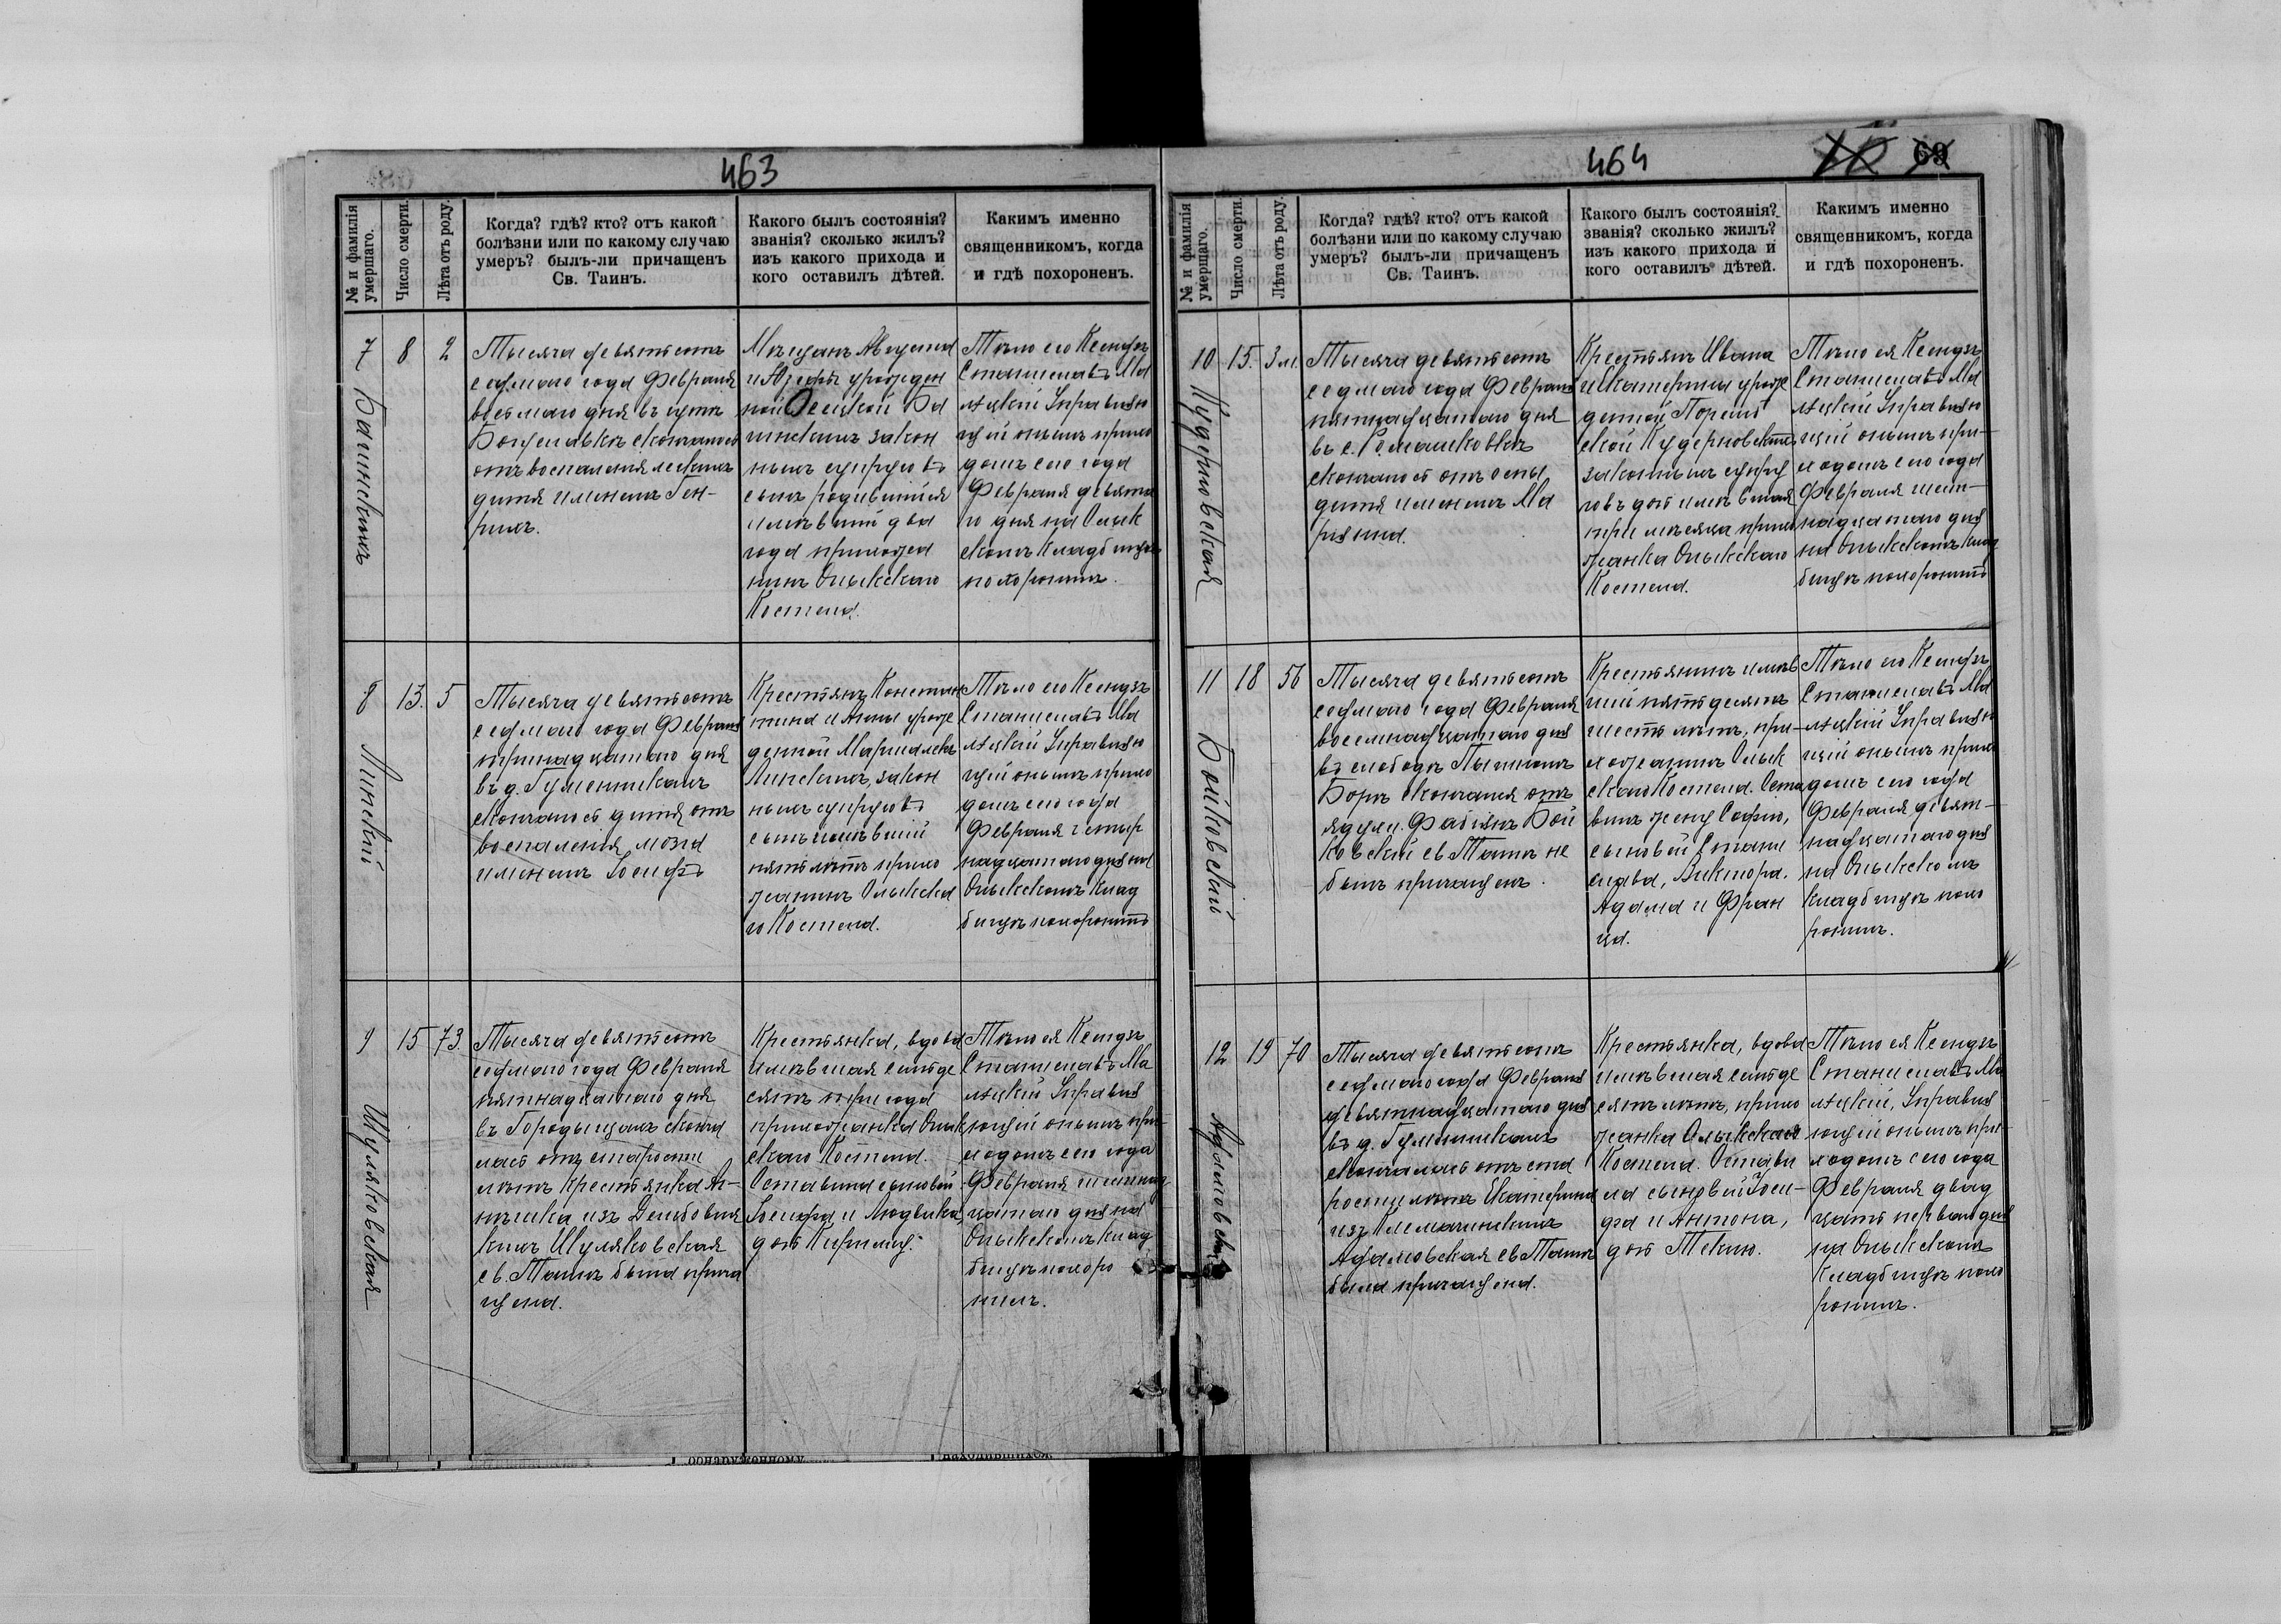 463
№ и фамилія умершаго.
Число смерти.
Лѣта отъ роду.
Когда? гдѣ? кто? отъ какой
болѣзни или по какому случаю
умеръ? былъ-ли причащенъ
Св. Таинъ.
Какого былъ состоянія?
званія? сколько жилъ?
изъ какого прихода и
кого оставилъ дѣтей.
Какимъ именно
священникомъ, когда
и гдѣ похороненъ.
7
8
2
Тысяча девятьсотъ
седмаго года Февраля
восмаго дня въ
скончалось
отъ воспаленія легкихъ
дитя именемъ Ген-
рихъ.
Мѣщанъ Августина
и Юзефы урожден
ной Ба
инскихъ закон
ныхъ супруговъ
сынъ родившійся
имѣвшій два
года прихожа
нинъ Олыкскаго
Костела.
Тѣло его Ксендзъ
Станиславъ Ма
лецкій Управляю
щій онымъ прихо
домъ сего года
Февраля девята
го дня на Олык
скомъ кладбищѣ
похоронилъ.
8
13.
5
Линскій
Тысяча девятьсотъ
седмаго года Февраля
тринадцатаго дня
въ д. Гуменникахъ
скончалось дитя отъ
воспаленія мозга
именемъ Іосифъ
Крестьянъ Констан
тина и Анны урож
денной Маршалекъ
Линскихъ, закон
ныхъ супруговъ
сынъ имѣвшій
пять лѣтъ прихо
жанинъ Олыкска
го Костела.
Тѣло его Ксендзъ
Станиславъ Ма
лецкій Управляю
щій онымъ прихо
домъ сего года
Февраля четыр
надцатаго дня на
Олыкскомъ клад
бищѣ похоронилъ
9
15
73.
Шуляковская
Тысяча девятьсотъ
седмаго года Февраля
пятнадцатаго дня
въ Городищахъ сконча
лась отъ старости
лѣтъ крестьянка Аг-
нѣшка изъ
Шуляковская
св. Таинъ была прича
щена.
Крестьянка, вдова
имѣвшая семьде
сятъ три года
прихожанка Олык
скаго Костела.
Оставила сыновей
Іосифа и Людвика,
дочь
Тѣло ея Ксендзъ
Станиславъ Ма
лецкій Управля
ющій онымъ при-
ходомъ сего года
Февраля шестнад
цатаго дня на
Олыкскомъ клад
бищѣ похоро
нилъ.
464
69
№ и фамилія умершаго.
Число смерти.
Лѣта отъ роду.
Когда? гдѣ? кто? отъ какой
болѣзни или по какому случаю
умеръ? былъ-ли причащенъ
Св. Таинъ.
Какого былъ состоянія?
званія? сколько жилъ?
изъ какого прихода и
кого оставилъ дѣтей.
Какимъ именно
священникомъ, когда
и гдѣ похороненъ.
10
15.
3 м.
Кудерновская
Тысяча девятьсотъ
седмаго года Февраля
пятнадцатаго дня
въ с. Ромашковкѣ
скончалось отъ оспы
дитя именемъ Ма
ріянна.
Крестьянъ Ивана
и Екатерины урож
денной
Кудерновскихъ
законныхъ супру
говъ дочь имѣвшая
три мѣсяца прихо
жанка Олыкскаго
Костела.
Тѣло ея Ксендзъ
Станиславъ Ма
лецкій Управляю
щій онымъ при-
ходомъ сего года
Февраля шест-
надцатаго дня
на Олыкскомъ клад
бищѣ похоронилъ
11
18
56
Бойковскій
Тысяча девятьсотъ
седмаго года Февраля
восемнадцатаго дня
въ слободѣ Пьянномъ
Борѣ скончался отъ
Фабіянъ Бой
ковскій св. Таинъ не
былъ причащенъ.
Крестьянинъ имѣв
шій пятьдесятъ
шесть лѣтъ, при-
хожанинъ Олык
скаго Костела. Оста
вилъ жену Софію,
сыновей Стани
слава, Виктора.
Адама и Фран
ца.
Тѣло его Ксендзъ
Станиславъ Ма
лецкій Управляю
щій онымъ прихо
домъ сего года
Февраля девят-
надцатаго дня
на Олыкскомъ
кладбищѣ похо
ронилъ.
12
19
70
Адамовская
Тысяча девятьсотъ
седмаго года Февраля
девятнадцатаго дня
въ д. Гуменникахъ
скончалась отъ ста
рости лѣтъ Екатерина
изъ
Адамовская св. Таинъ
была причащена.
Крестьянка, вдова
имѣвшая семьде
сятъ лѣтъ, прихо
жанка Олыкскаго
Костела. Остави
ла сыновей Іоси-
фа и Антона,
дочь Теклю.
Тѣло ея Ксендзъ
Станиславъ Ма
лецкій, Управля
ющій онымъ при-
ходомъ сего года
Февраля двад
цать перваго дня
на Олыкскомъ
кладбищѣ похо
ронилъ.
обнаруженному
находившихся